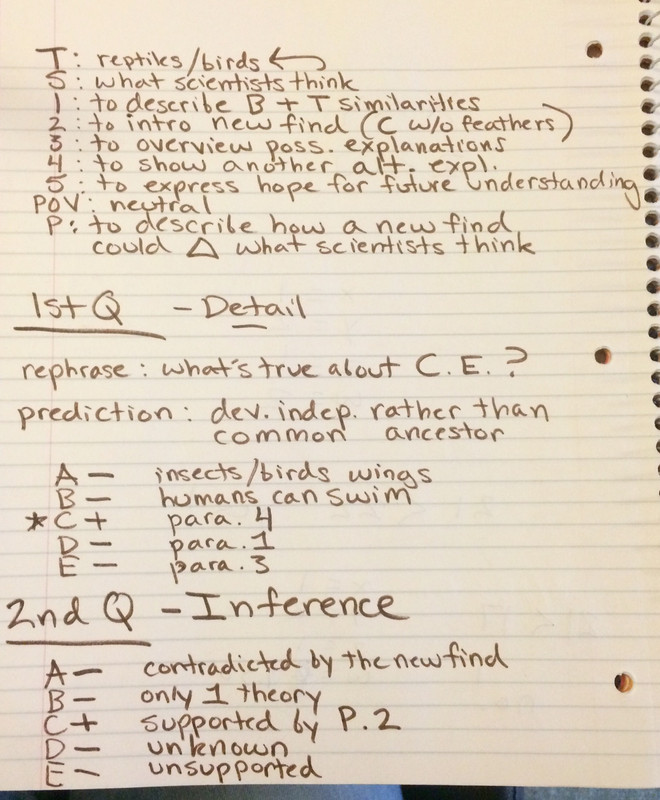 T: reptiles/birds
S: what scientists think
1: to describe B + T similarities
2: to intro new find (C w/o feathers)
3: to overview poss. explanations
4: to show another alt. expl.
5: to express hope for future understanding
POV: neutral
P: to describe how a new find
could △ what scientists think
1st Q - Detail
rephrase: what's true about C.E.?
prediction: dev. indep. rather than
common ancestor
A - insects/birds wings
B - humans can swim
* C + para. 4
D - para. 1
E - para. 3
2nd Q - Inference
A - contradicted by the new find
B - only 1 theory
C + supported by P. 2
D - unknown
E - unsupported